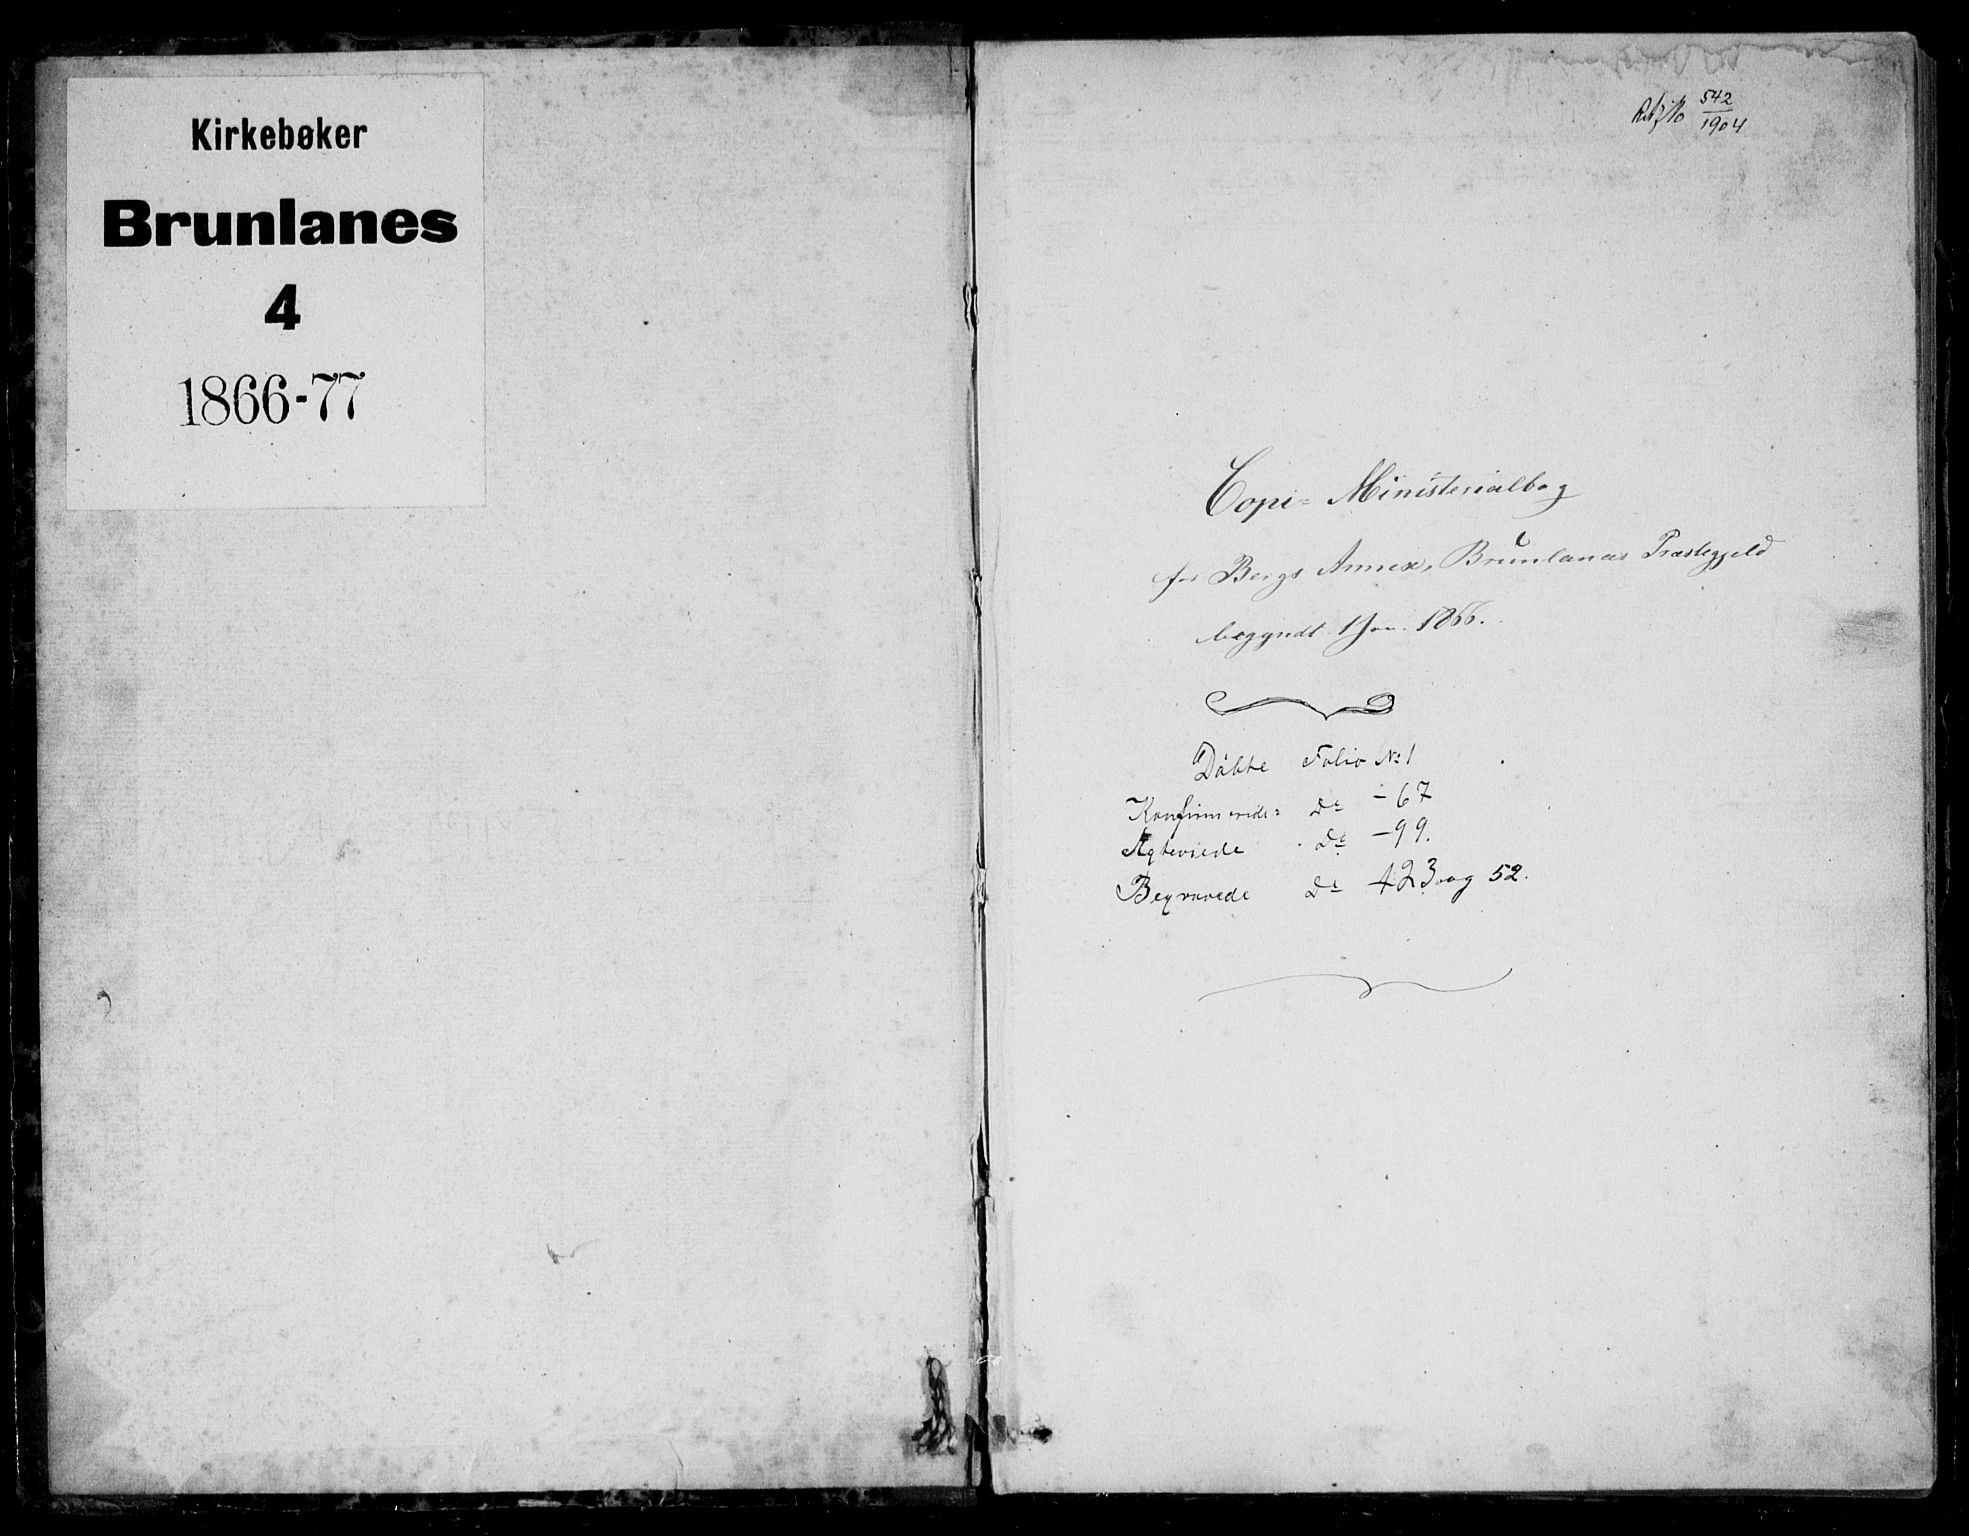 Kirkebøker
Brunlanes
4
1866-77
542
1904
Copi- Ministerialbog
for Bergs Annex, Brunlanes Præstegjeld
begyndt 1 Jan. 1866.
Døbte Folio No 1
Konfirmerede Do - 67
Ægteviede Do - 99.
Begravede Do 123 og 52.